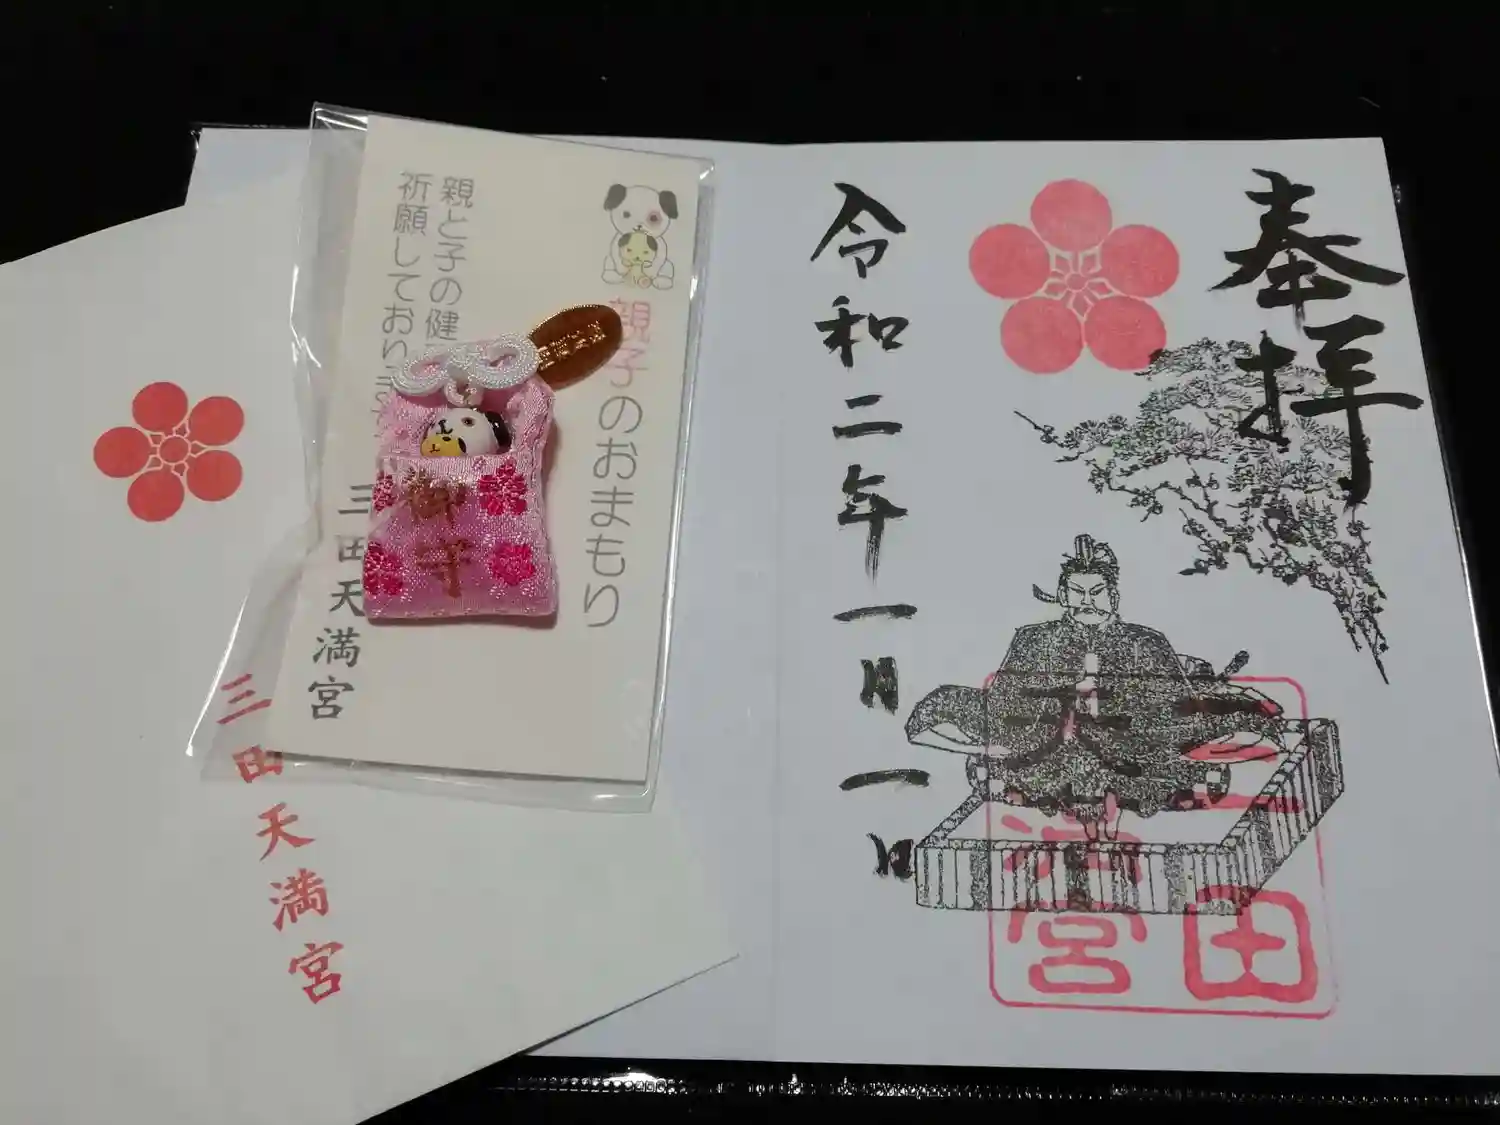 奉拝
令和二年一月一日
三田
天満宮
親子のおまもり
親と子の健
祈願しており
三田天満宮
御守
三田天満宮